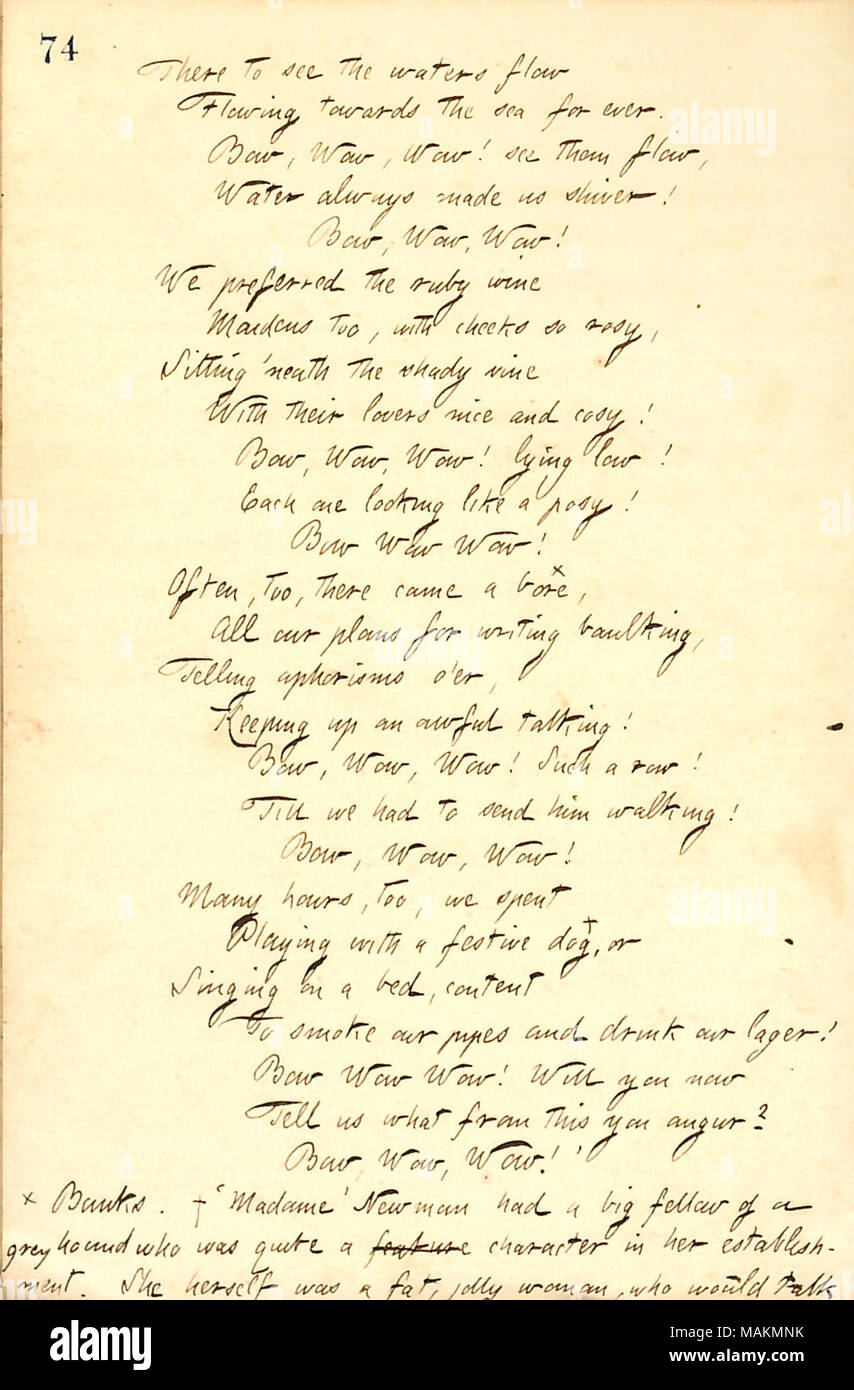 74
There to see the waters flow
Flowing towards the sea for ever.
Bow, Wow, Wow! see them flow,
Water always made us shiver!
Bow, Wow, Wow!
We preferred the ruby wine
Maidens too, with cheeks so rosy,
Sitting 'neath the shady vine
With their lovers nice and cosy!
Bow, Wow, Wow! lying low!
Each one looking like a posy!
Bow Wow Wow!
Often, too, there came a bore x,
All our plans for writing baulking,
Telling aphorisms o'er,
Keeping up an awful talking!
Bow, Wow, Wow! Such a row!
Till we had to send him walking!
Bow, Wow, Wow!
Many hours, too, we spent
Playing with a festive dog †, or
Singing on a bed, content
To smoke our pipes and drink our lager!
Bow Wow Wow! Will you now
Tell us what from this you augur?
Bow, Wow, Wow!'
x Banks. † 'Madame' Newman had a big fellow of a
greyhound who was quite a feature character in her establish-
ment. She herself was a fat, jolly woman, who would talk
alamy
Image ID: MAKMNK
www.alamy.com